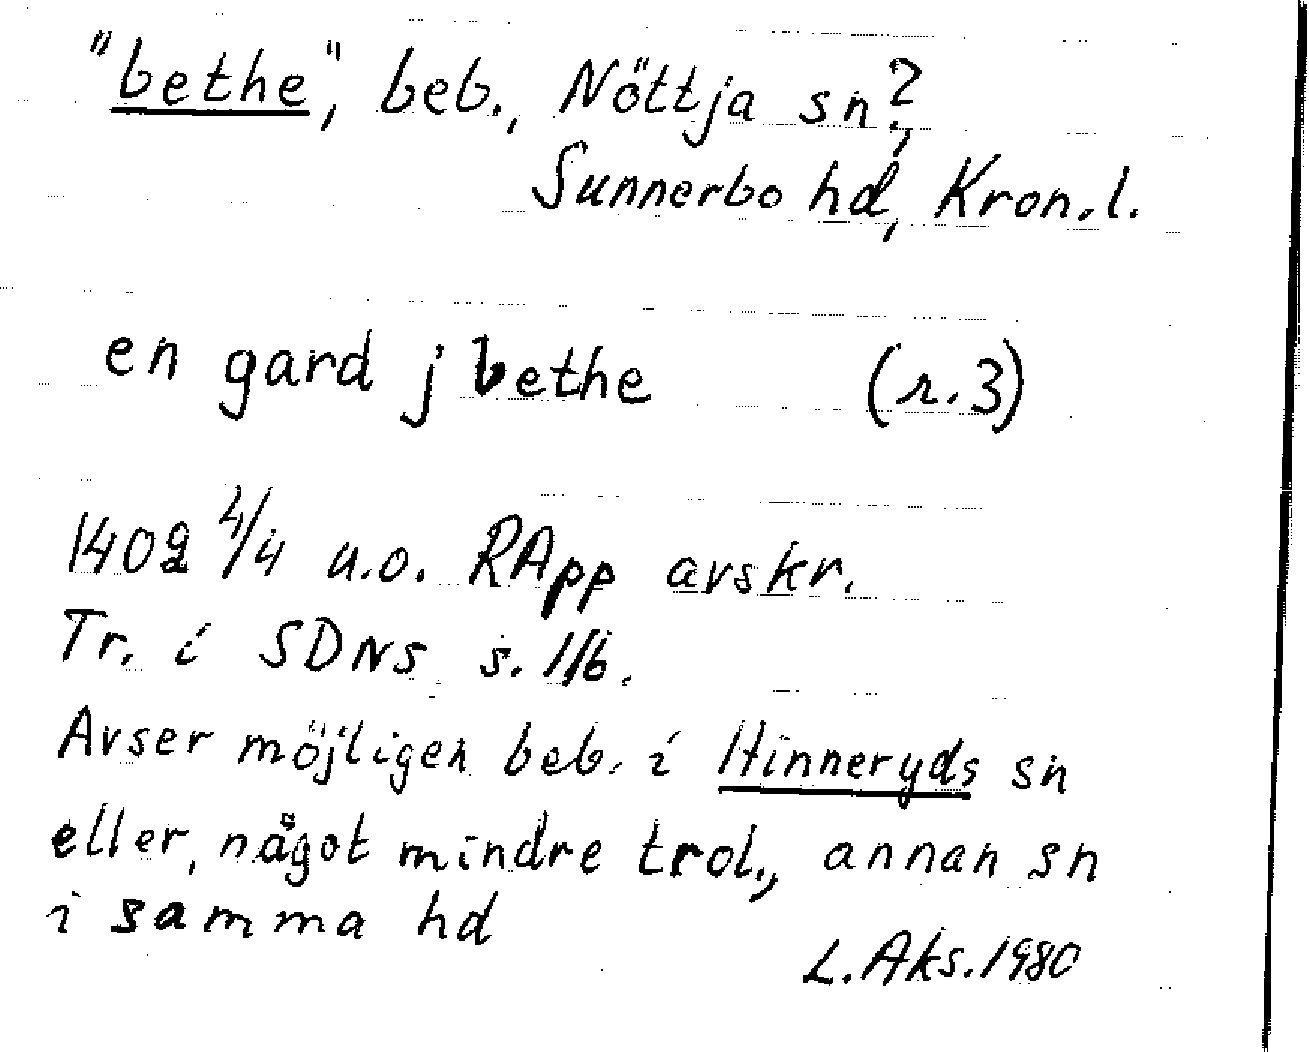 "bethe", beb., Nöttja sn?,
Sunnerbo hd, Kron.l.
en gard j bethe (r.3)
1402 4/4 u.o. RApp avskr.
Tr. i SDNS s. 116.
Avser möjligen beb. i Hinneryds sn
eller, något mindre trol., annan sn
i samma hd
L.Aks.1980